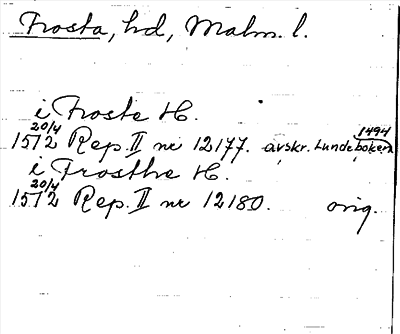 Frosta, hd, Malm. l.
i Froste H.
1512 20/4 Rep. II nr 12177. avskr. Lundeboken 1494
i Frosthe H.
1512 20/4 Rep. II nr 12180. orig.